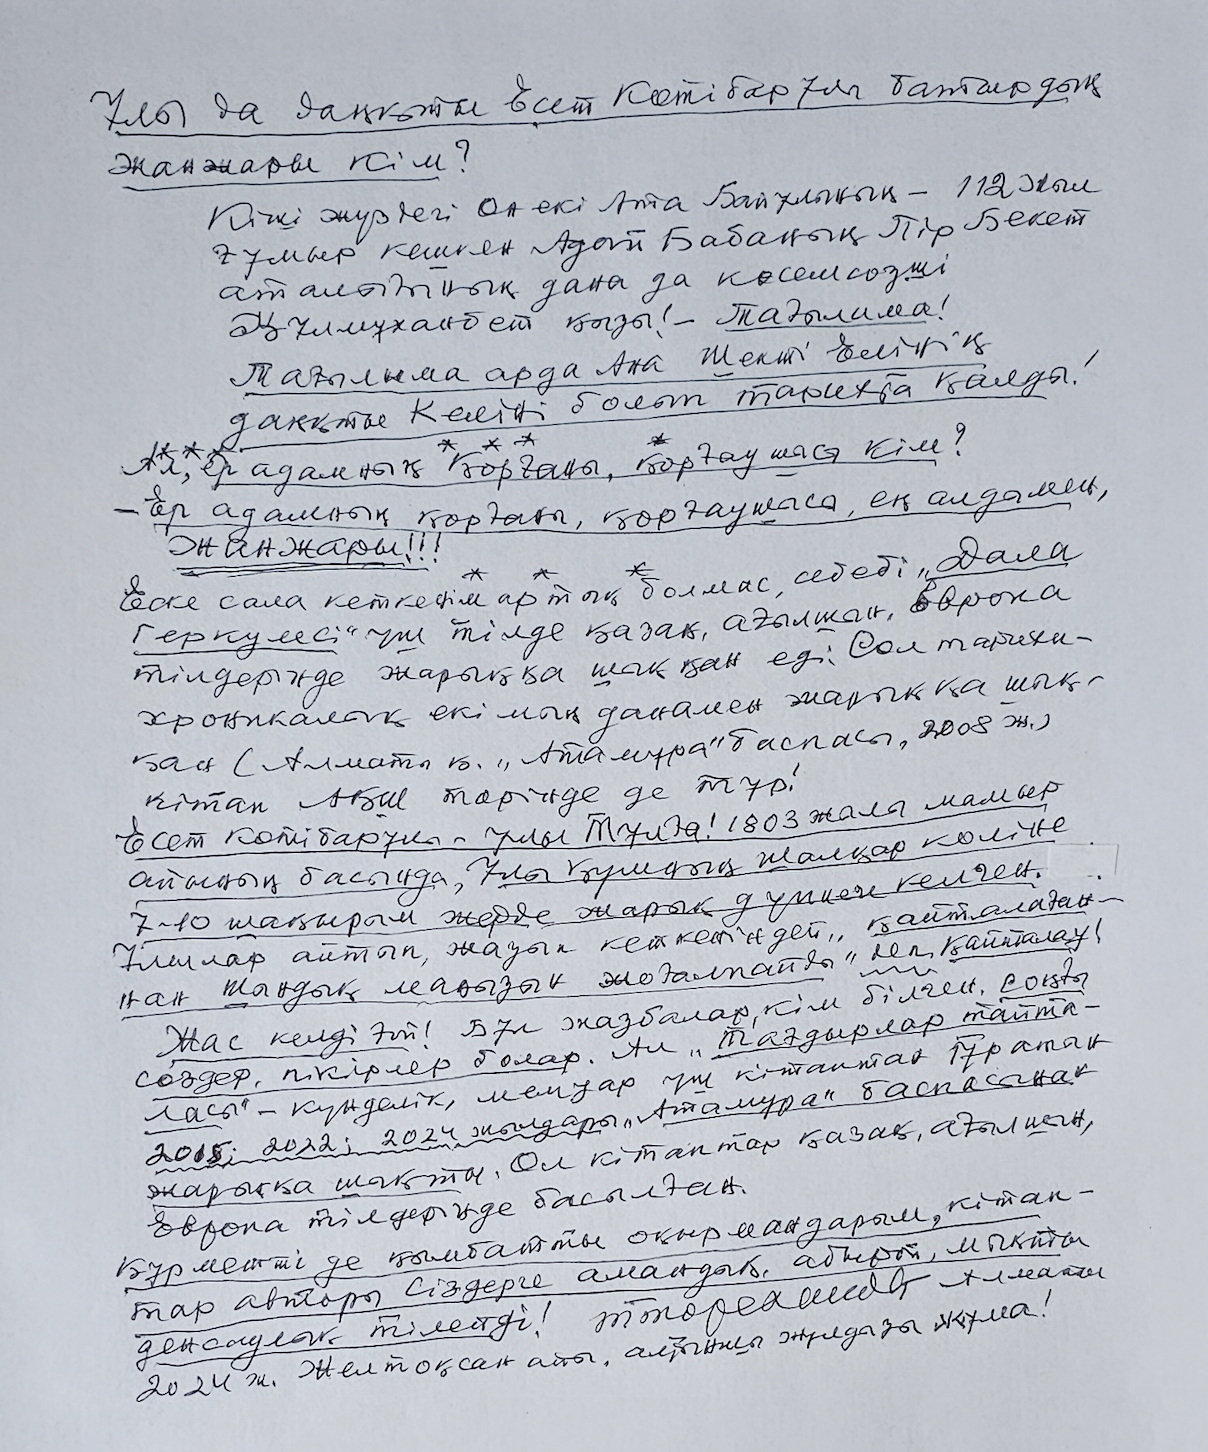 Ұлы да даңқты Есет Көтібарұлы батырдың
жанжары кім?
Кіші жүздегі он екі Ата Байұлының – 112 жыл
ғұмыр кешкен Адай Бабаның Пір Бекет
аталығының дана да көсемсөзші
Жұлмұханбет қызы! – Тағылима!
Тағылыма арда Ана Шекті Елінің
даңқты Келіні болып тарихта қалды!
Ал, ер адамның қорғаны, қорғаушысы кім?
– Ер адамның қорғаны, қорғаушысы, ең алдымен,
Жанжары!!!
Еске сала кеткенім артық болмас, себебі „Дала
Геркулесі" үш тілде қазақ, ағылшын, Европа
тілдерінде жарыққа шыққан еді. Сол тарихи-
хроникалық екі мың данамен жарыққа шық-
қан (Алматы қ. „Атамұра" баспасы, 2008 ж.)
кітап АҚШ төрінде де тұр!
Есет Көтібарұлы – ұлы Тұлға! 1803 жылы мамыр
айының басында, Ұлы Құмның Шалқар көліне
7-10 шақырым жерде жарық дүниеге келген.
Ұлылар айтып, жазып кеткеніндей „қайталаған-
нан шындық маңызын жоғалтпайды" деп қайталау!
Жас келді ғой! Бұл жазбалар, кім білген, соңғы
сөздер, пікірлер болар. Ал „Тағдырлар тайта-
ласы" – күнделік, мемуар үш кітаптан тұратын
2015; 2022; 2024 жылдары „Атамұра" баспасынан
жарыққа шықты. Ол кітаптар қазақ, ағылшын,
Европа тілдерінде басылған.
Құрметті де қымбатты оқырмандарым, кітап-
тар авторы Сіздерге амандық, абырой, мықты
денсаулық тілейді! Алматы
2024 ж. Желтоқсан айы, алтыншы жұлдызы жұма!